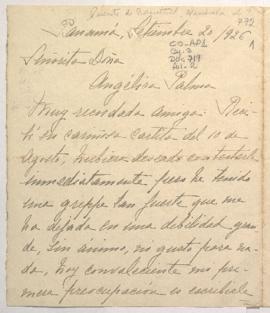 Panamá, Setiembre 20/1926
772
CO-AP1
Señorita Doña
Angélica Palma
Muy recordada amiga: Reci-
bí en cariñosa cartita del 10 de
Agosto, hubiera deseado contestarle
inmediatamente, pero he tenido
una grippe tan fuerte que me
ha dejado en una debilidad gran-
de, sin ánimo, no gusto para na-
da, hoy convaleciente mi pri-
mera preocupación es escribirle